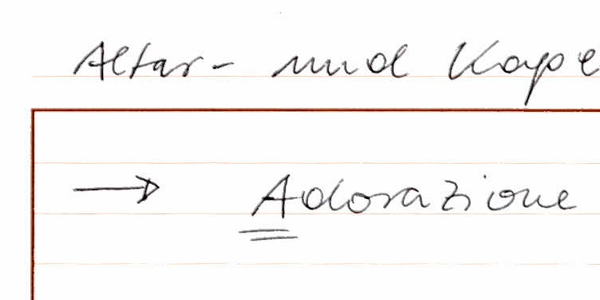 Altar- und Kape
→ Adorazione